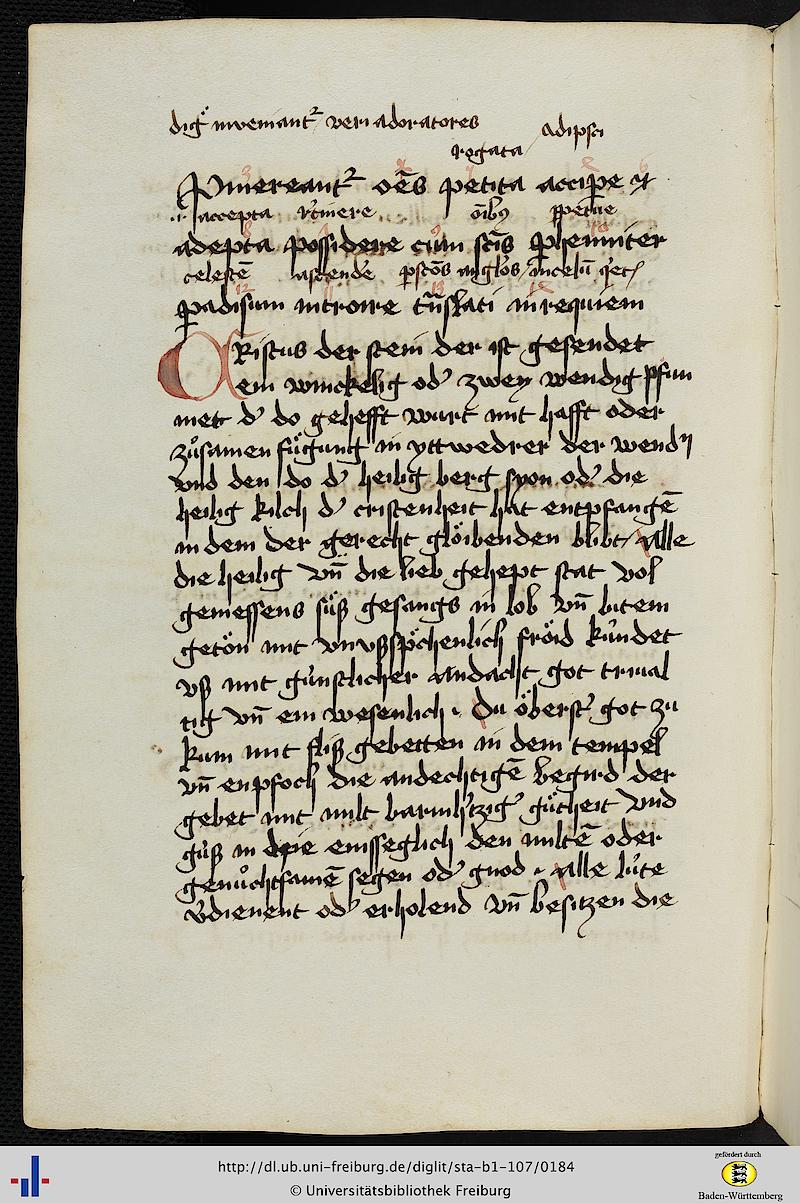 dig͛ inveniant᷑ veri adoratores
adipsci
rogata
Pmereant᷑ oēs petita accipe ⁊
accepta r̃tinere oīb9 ꝑpetue
adepta possidere cum scīs phenniter
celestē ascende ꝑ scōs anglos in celū
ꝑadisum introire trñslati in requiem
CRistus der stein der ist gesendet
ein winckelig od͛ zwey wendig pfun
met d͛ do gehefft wart mit hafft oder
zůsamen fügung in yttwedrer der wendn
vnd den do d͛ heilig berg syon od͛ die
heilig kilch d͛ cristenheit hat entpfangē
in dem der gerecht glöibenden blibt / Alle
die heilig vn̄ die lieb gehept stat vol
gemessens süß gesangs in lob vn̄ bitem
getön mit vnvßspöchenlich fröid kündet
vß mit günstlicher andacht got trinal
tig vn̄ ein wesenlich . Du öberst͛ got zu
kum mit fliß gebetten in dem tempel
vn̄ enpfoch die andechtigē begird der
gebet mit milt barmh͛tzig͛ gütheit vnd
güß in drie einsseglich den miltē oder
genůchtsamē segen od͛ gnod . Alle lüte
v͛dienent od͛ erholend vn̄ besitzen die
http://dl.ub.uni-freiburg.de/diglit/sta-b1-107/0184
© Universitätsbibliothek Freiburg
gefördert durch
Baden-Württemberg